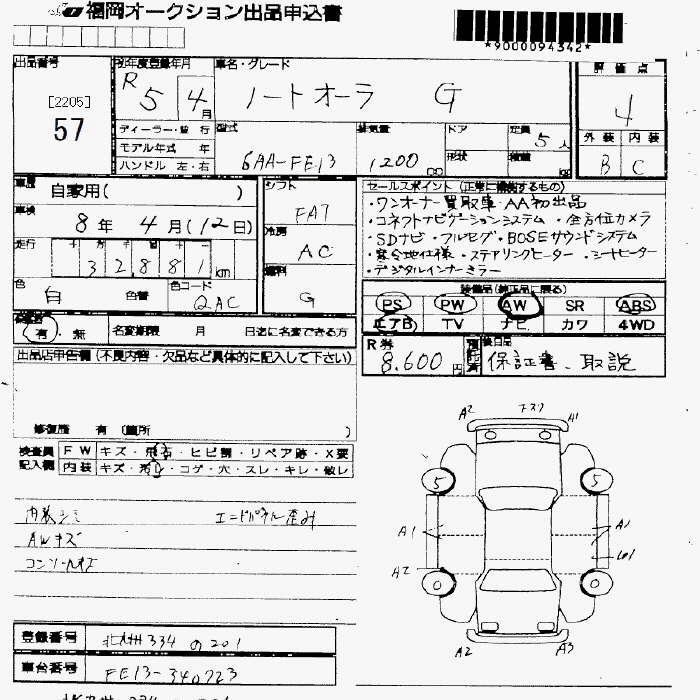 福岡オークション出品申込書
*9000094342*
出品番号
[2205]
57
初年度登録年月
R 5 4月
車名・グレード
ノートオーラ G
評価点
4
ディーラー・並行
モデル年式 年
ハンドル 左・右
型式
6AA-FE13
排気量
1200 cc
ドア
形状
定員
5人
積載
外装 内装
B C
車歴
自家用( )
車検
8年 4月(12日)
走行
32,881km
色
白
色替
色コード
QAC
シフト
FAT
冷房
AC
燃料
G
セールスポイント (正常に機能するもの)
・ワンオーナー 買取車・AA初出品
・コネクトナビゲーションシステム ・全方位カメラ
・SDナビ・フルセグ・BOSEサウンドシステム
・寒冷地仕様 ・ステアリングヒーター ・シートヒーター
・デジタルインナーミラー
装備品(純正品に限る)
PS PW AW SR ABS
エアB TV ナビ カワ 4WD
有 無
名変期限 月 日迄に名変できる方
R券
8,600円
後日品
保証書、取説
出品店申告欄 (不良内容・欠品など具体的に記入して下さい)
修復歴 有 (箇所 )
検査員
記入欄
FW キズ・飛石・ヒビ割・リペア跡・X要
内装 キズ・汚レ・コゲ・穴・スレ・キレ・破レ
内装シミ エンドパネル歪み
AWキズ
コンソールキズ
A2 A1
5 5
A1 A1
A2
0 0
A2 A3
登録番号 北九州 334 の 201
車台番号 FE13-340723